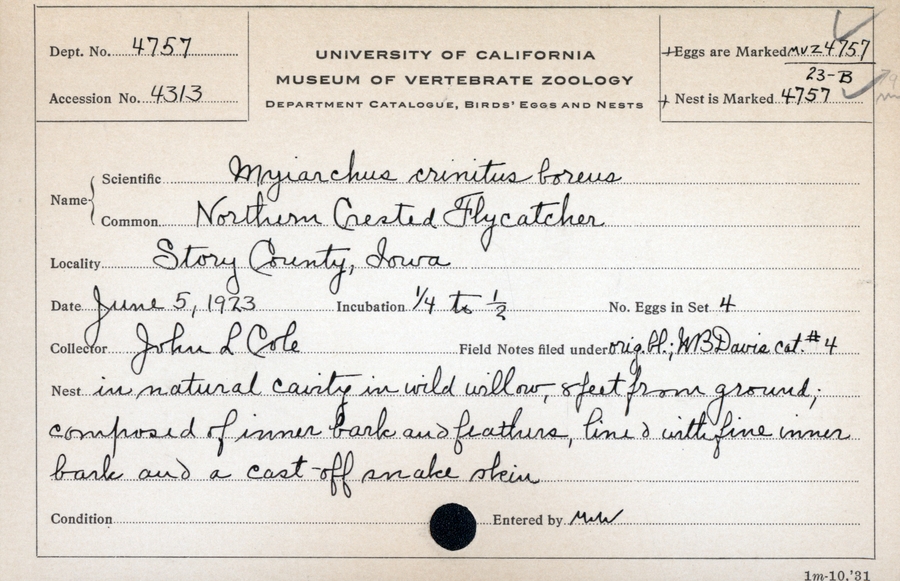 Dept. No. 4757
Accession No. 4313
UNIVERSITY OF CALIFORNIA
MUSEUM OF VERTEBRATE ZOOLOGY
DEPARTMENT CATALOGUE, BIRDS' EGGS AND NESTS
Eggs are Marked MVZ4757
23-B
Nest is Marked 4757
Name
Scientific Myiarchus crinitus boreus
Common Northern Crested Flycatcher
Locality Story County, Iowa
Date June 5, 1923 Incubation 1/4 to 1/2 No. Eggs in Set 4
Collector John L Cole Field Notes filed under orig. bl.; WBDavis cat. #4
Nest in natural cavity in wild willow, 8 feet from ground;
composed of inner bark and feathers, lined with fine inner
bark and a cast-off snake skin
Condition Entered by
1m-10,'31